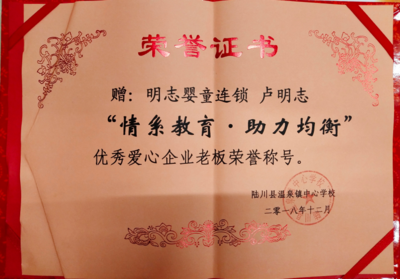 荣誉证书
赠：明志婴童连锁 卢明志
“情系教育·助力均衡”
优秀爱心企业老板荣誉称号。
陆川县温泉镇中心学校
二〇一八年十二月